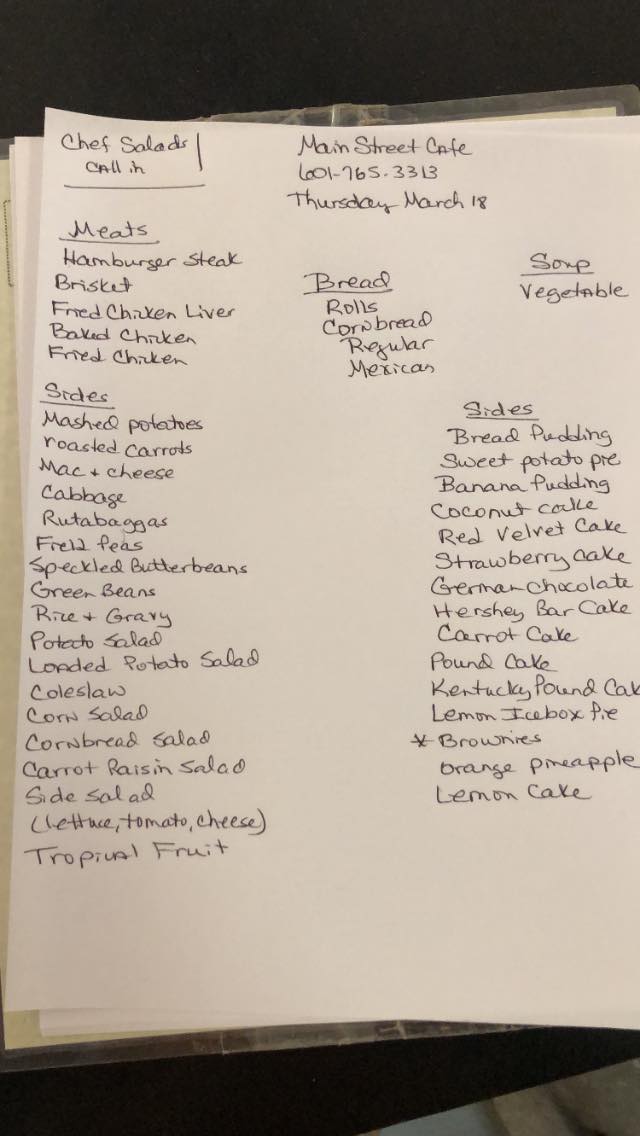 Chef Salads
Call in
Main Street Cafe
601-765-3313
Thursday March 18
Meats
Hamburger Steak
Brisket
Fried Chicken Liver
Baked Chicken
Fried Chicken
Bread
Rolls
Cornbread
Regular
Mexican
Soup
Vegetable
Sides
Mashed potatoes
roasted carrots
Mac + cheese
Cabbage
Rutabaggas
Field Peas
Speckled Butterbeans
Green Beans
Rice + Gravy
Potato Salad
Loaded Potato Salad
Coleslaw
Corn Salad
Cornbread Salad
Carrot Raisin Salad
Side Salad
(lettuce, tomato, cheese)
Tropical Fruit
Sides
Bread Pudding
Sweet potato pie
Banana Pudding
Coconut cake
Red Velvet Cake
Strawberry Cake
German Chocolate
Hershey Bar Cake
Carrot Cake
Pound Cake
Kentucky Pound Cak
Lemon Icebox Pie
* Brownies
Orange pineapple
Lemon Cake